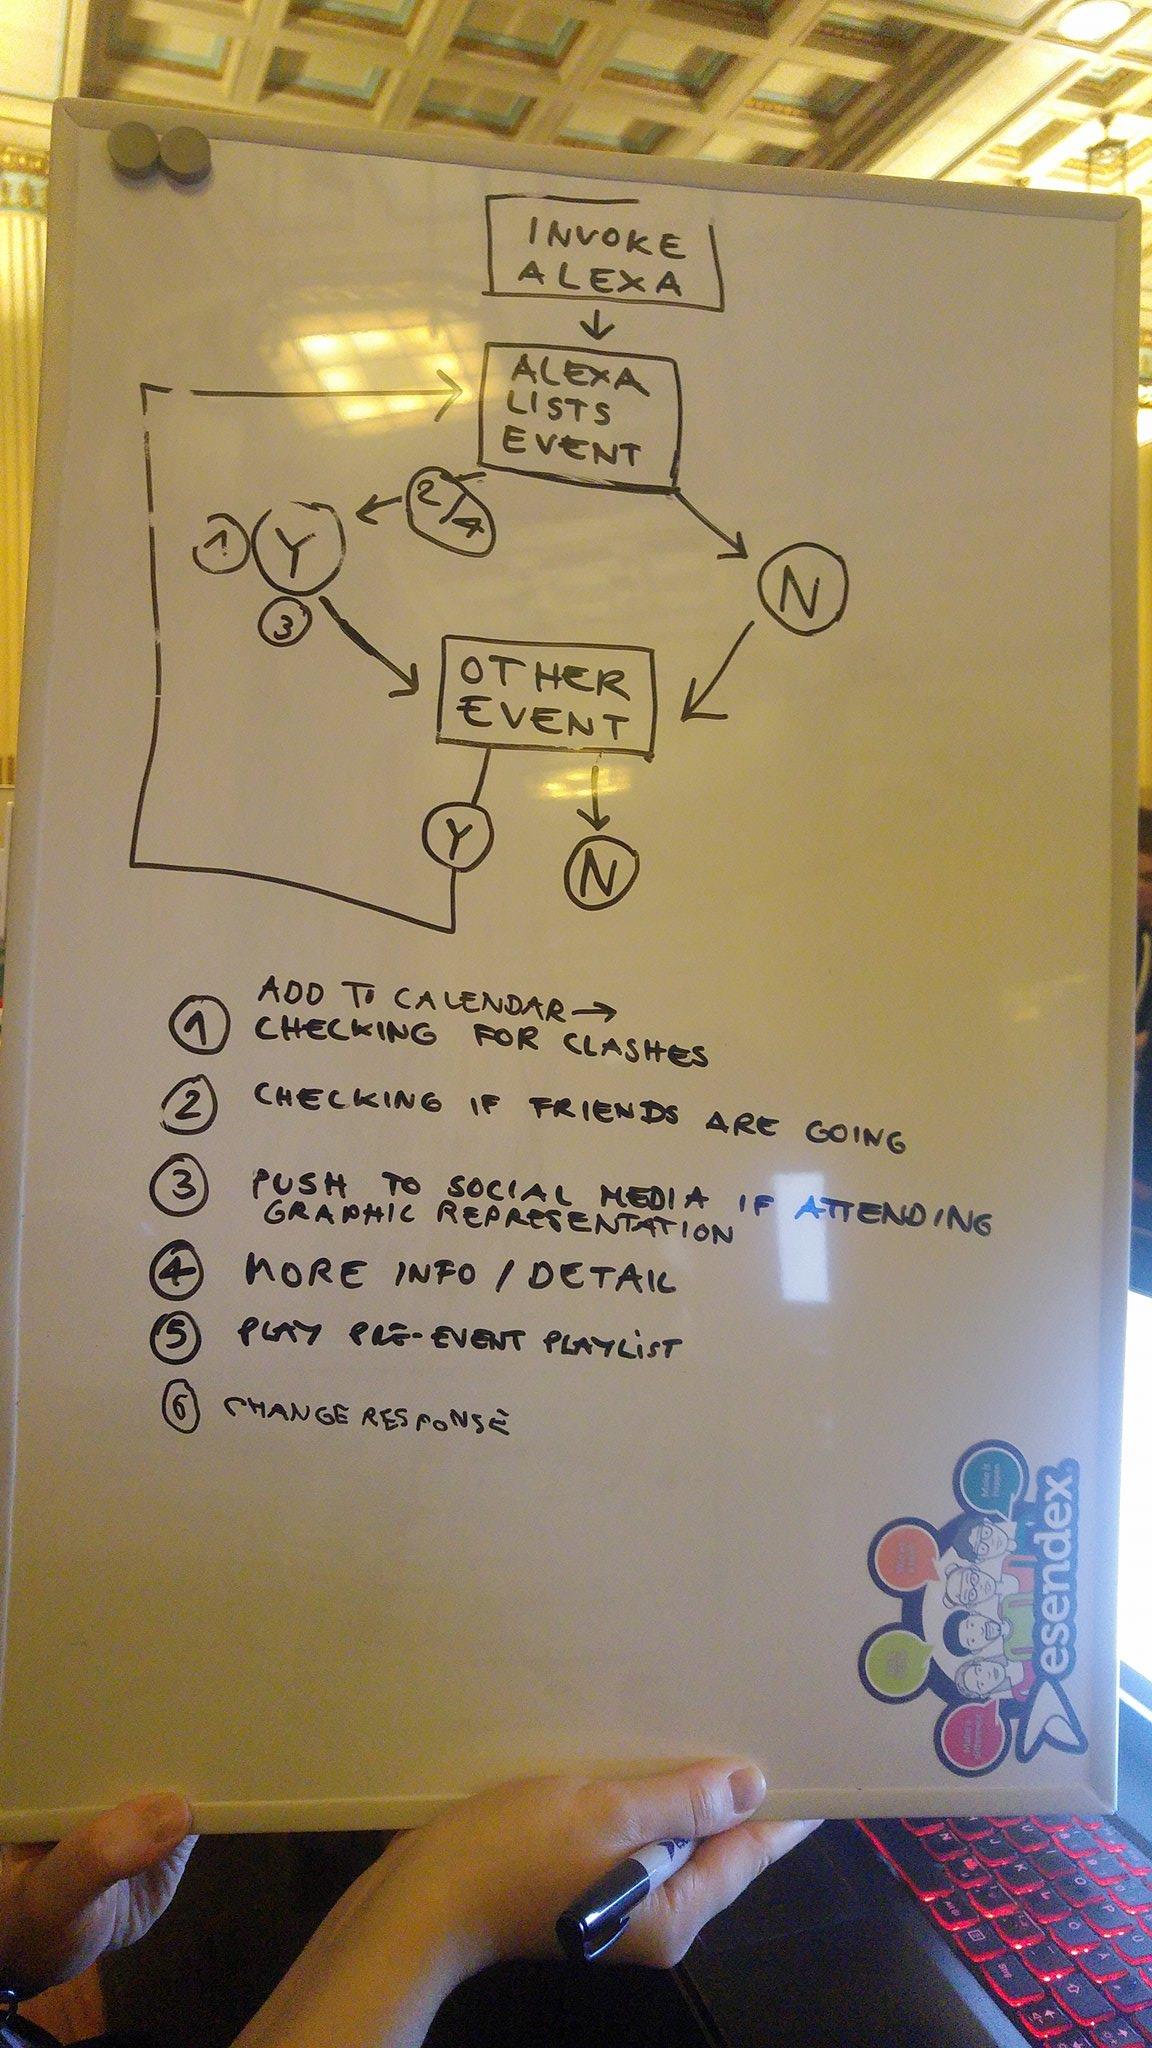 INVOKE
ALEXA
ALEXA
LISTS
EVENT
2/4
1
Y
3
N
OTHER
EVENT
Y
N
ADD TO CALENDAR →
1 CHECKING FOR CLASHES
2 CHECKING IF FRIENDS ARE GOING
3 PUSH TO SOCIAL MEDIA IF ATTENDING
GRAPHIC REPRESENTATION
4 MORE INFO / DETAIL
5 PLAY PRE-EVENT PLAYLIST
6 CHANGE RESPONSE
Make it
happen
esendex.